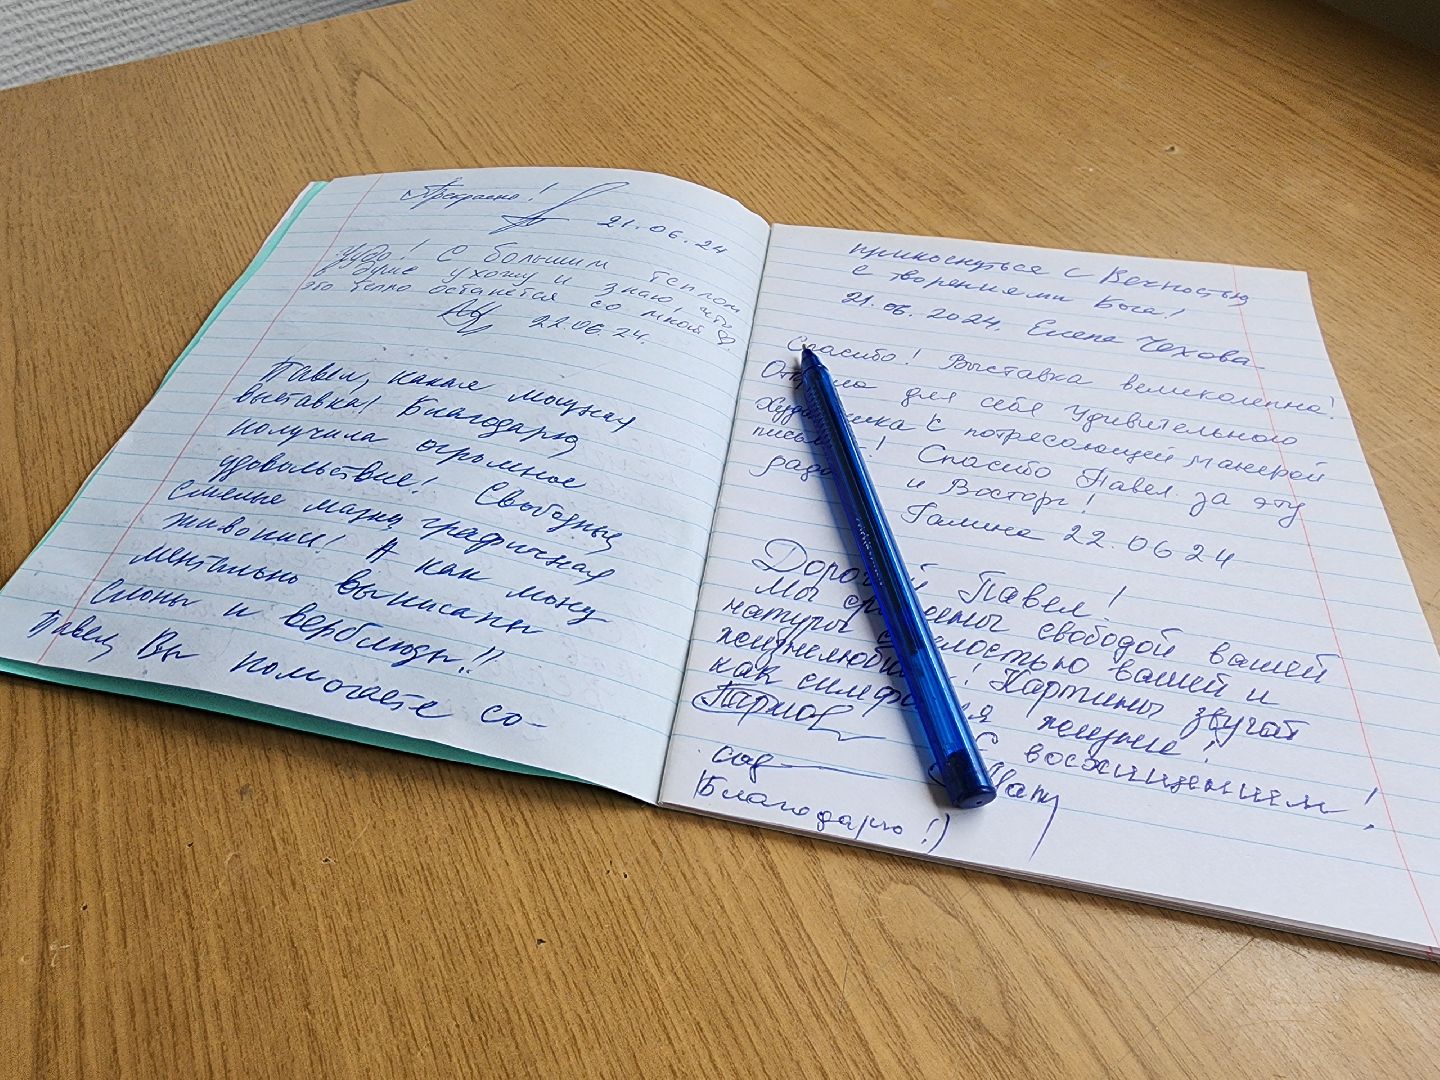 Прекрасно!
21.06.24
Чудо! С большим теплом
в душе ухожу и знаю, что
это тепло останется со мной
22.06.24.
Павел, какая мощная
выставка! Благодарю
получила огромное
удовольствие! Свободные
смелые мазки графичная
живопись! А как мону
ментально выписаны
слоны и верблюды!!
Павел, Вы помогаете со-
прикоснуться с Вечностью
с творениями Бога!
21.06.2024. Елена Чехова
Спасибо! Выставка великолепна!
для себя удивительного
с потрясающей манерой
Спасибо Павел за эту
и Восторг!
Галина 22.06 24
Павел!
Мы свободой вашей
натуры вашей и
Картины звучат
как жизни!
С восхищением!
Благодарю!)